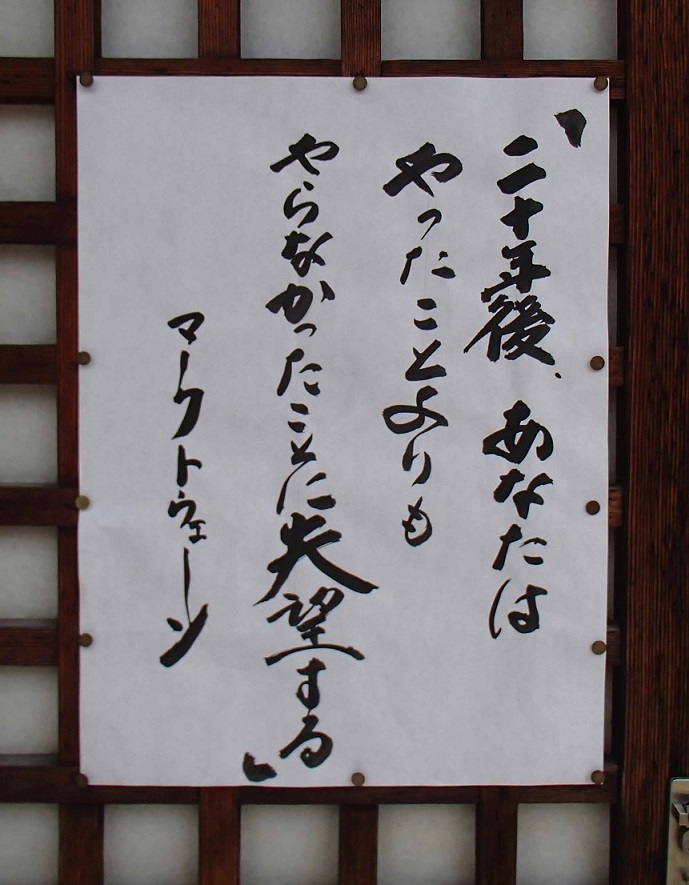 「二十年後、あなたは
やったことよりも
やらなかったことに失望する」
マークトウェーン